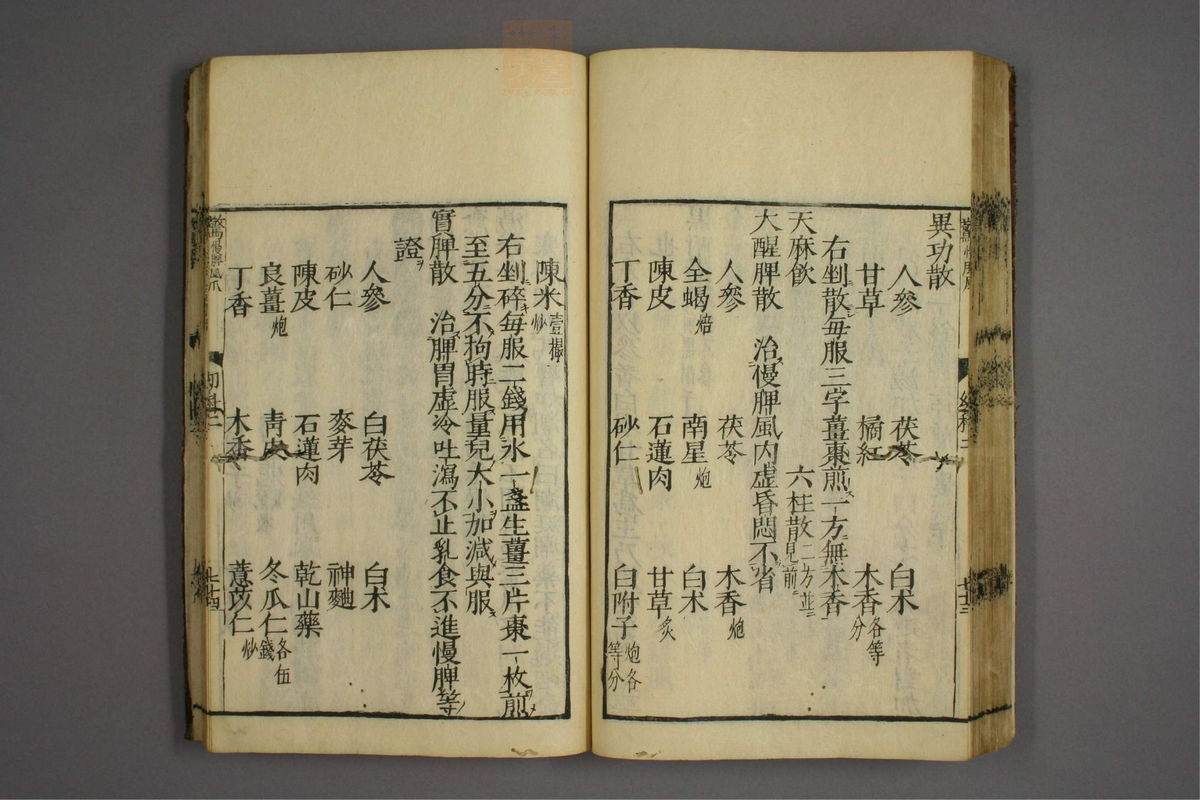 異功散
人參 茯苓 白朮
甘草 橘紅 木香各等分
右剉散每服三字薑棗煎一方無木香
天麻飲 六柱散二方並見前
大醒脾散 治慢脾風内虚昏悶不省
人參 茯苓 木香炮
全蝎焙 南星炮 白朮
陳皮 石蓮肉 甘草炙
丁香 砂仁 白附子炮各等分
陳米壹撮炒
右剉碎每服二錢用水一盞生薑三片棗一枚煎
至五分不拘時服量兒大小加減與服
實脾散 治脾胃虚冷吐瀉不止乳食不進慢脾等
證
人參 白茯苓 白朮
砂仁 麥芽 神麯
陳皮 石蓮肉 乾山藥
良薑炮 青皮 冬瓜仁各伍錢
丁香 木香 薏苡仁炒